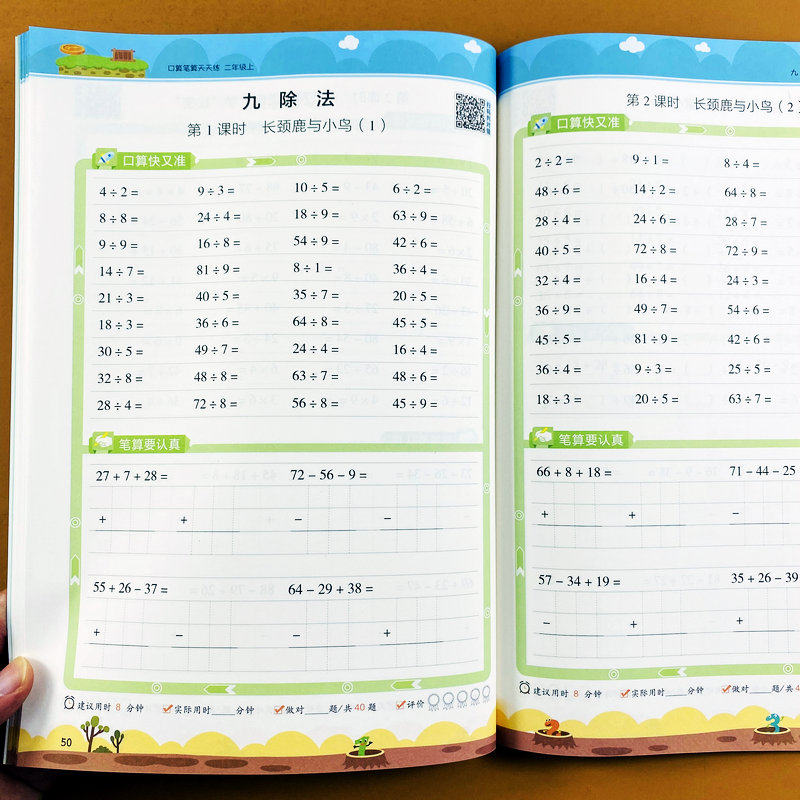 口算笔算天天练 二年级上
九 除 法
第 1 课时 长颈鹿与小鸟（1）
口算快又准
4÷2= 9÷3= 10÷5= 6÷2=
8÷8= 24÷4= 18÷9= 63÷9=
9÷9= 16÷8= 54÷9= 42÷6=
14÷7= 81÷9= 8÷1= 36÷4=
21÷3= 40÷5= 35÷7= 20÷5=
18÷3= 36÷6= 64÷8= 45÷5=
30÷5= 49÷7= 24÷4= 16÷4=
32÷8= 48÷8= 63÷7= 48÷6=
28÷4= 72÷8= 56÷8= 45÷9=
笔算要认真
27+7+28= 72-56-9=
+ + - -
55+26-37= 64-29+38=
+ - - +
建议用时 8 分钟 实际用时____分钟 做对____题/共 40 题 评价
50
九
第 2 课时 长颈鹿与小鸟（2
口算快又准
2÷2= 9÷1= 8÷4=
48÷6= 14÷2= 64÷8=
28÷4= 24÷6= 28÷7=
40÷5= 72÷8= 72÷9=
32÷4= 16÷4= 24÷3=
36÷9= 49÷7= 54÷6=
45÷5= 81÷9= 42÷6=
36÷4= 9÷3= 25÷5=
18÷3= 20÷5= 63÷7=
笔算要认真
66+8+18= 71-44-25
+ + -
57-34+19= 35+26-39
- + +
建议用时 8 分钟 实际用时____分钟 做对____题/共 4